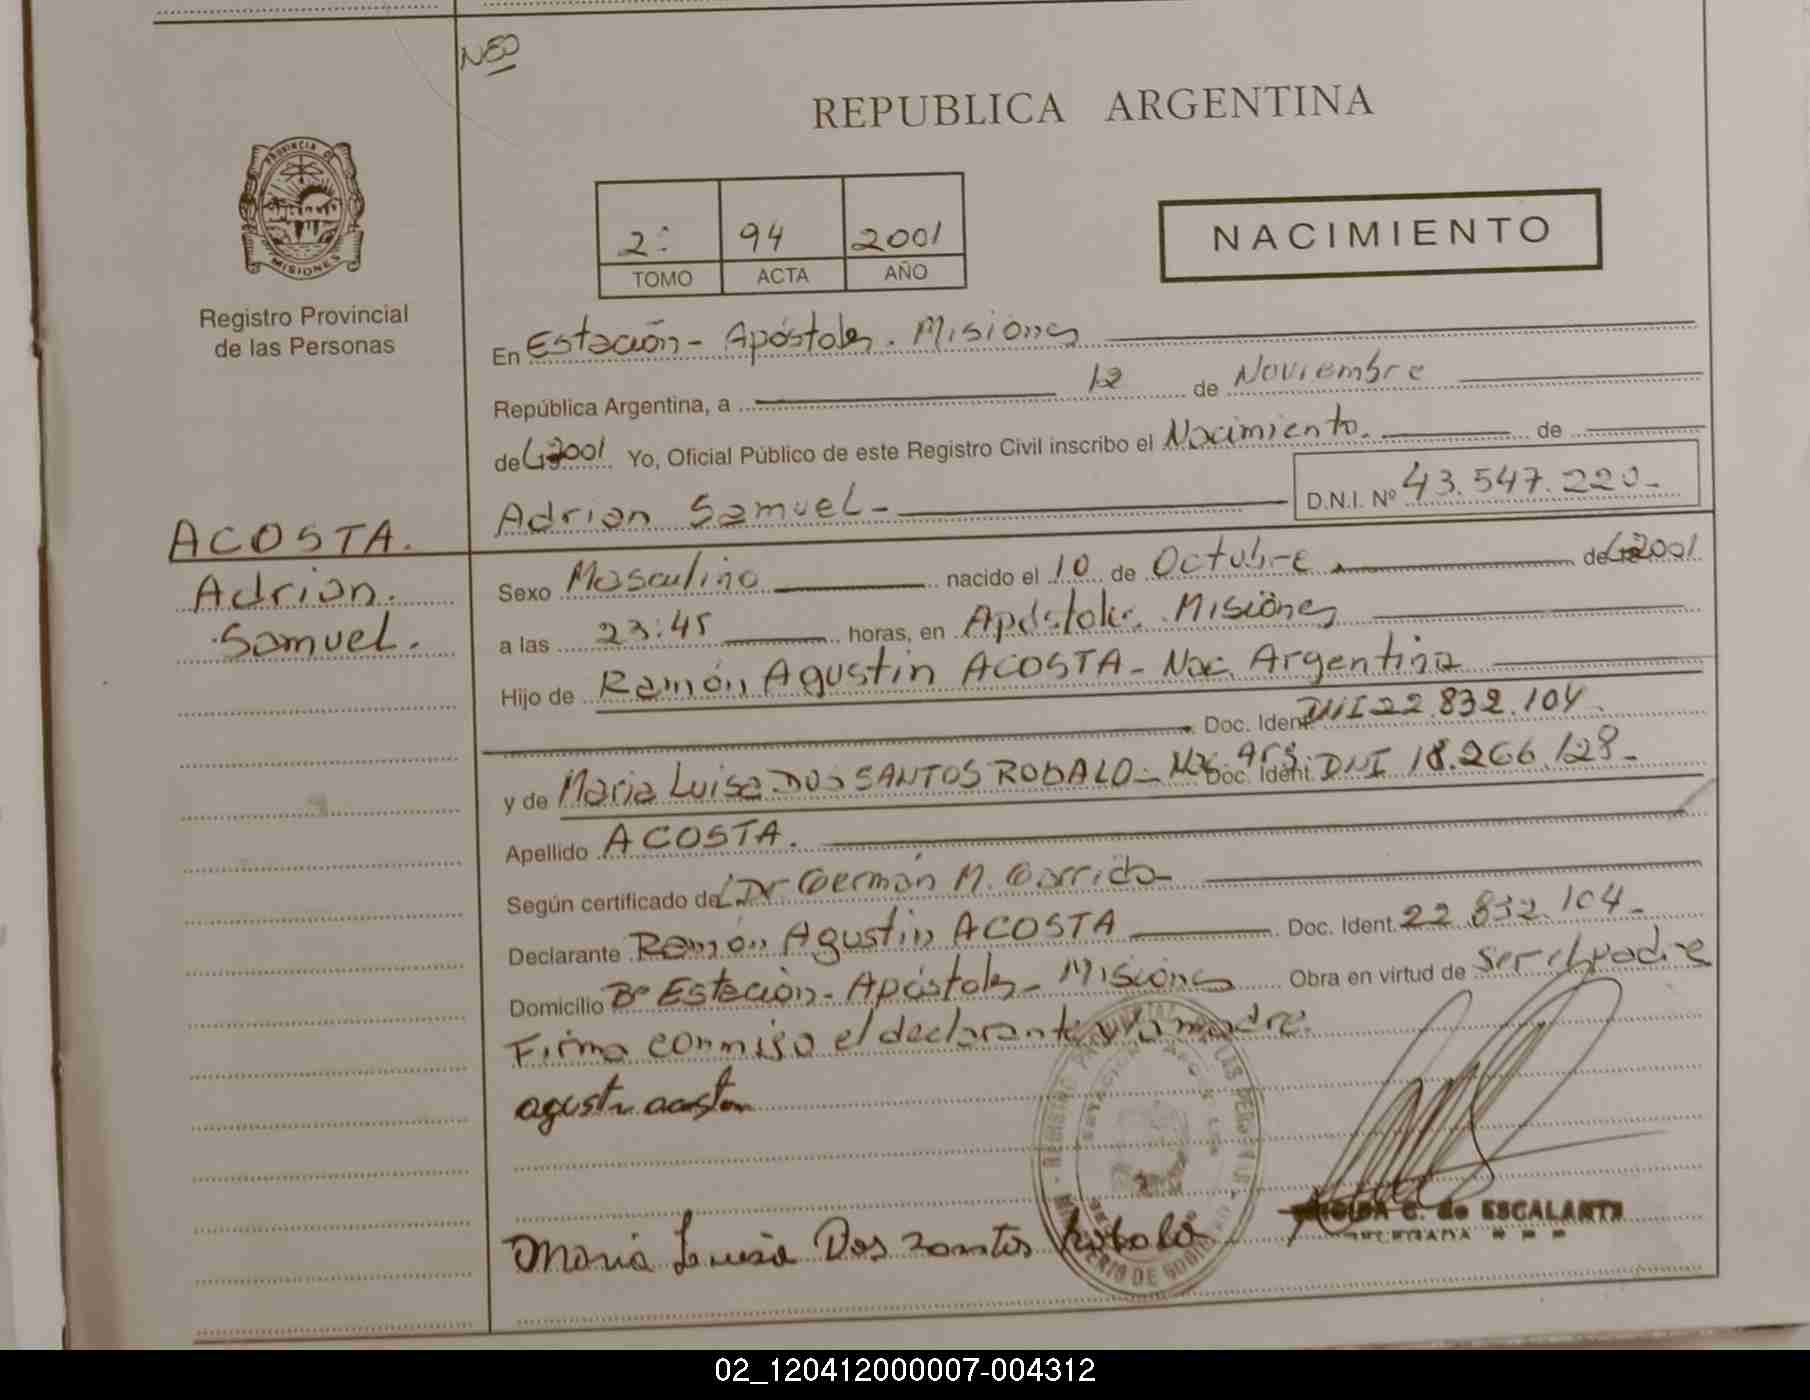 NEO
REPUBLICA ARGENTINA
PROVINCIA DE
MISIONES
Registro Provincial
de las Personas
2: 94 2001
TOMO ACTA AÑO
NACIMIENTO
En Estación - Apóstoles. Misiones
República Argentina, a 12 de Noviembre
de 2001 Yo, Oficial Público de este Registro Civil inscribo el Nacimiento. de
Adrian Samuel - D.N.I. Nº 43.547.220-
ACOSTA.
Adrian.
Samuel.
Sexo Masculino nacido el 10 de Octubre de 2001
a las 23:45 horas, en Apóstoles. Misiones
Hijo de Ramón Agustin ACOSTA - Nac. Argentina
Doc. Ident. DNI 22.832.104.
y de Maria Luisa DOS SANTOS ROBALO - Nac. Arg. Doc. Ident. DNI 18.266.128-
Apellido ACOSTA.
Según certificado de Dr German M. Garrido-
Declarante Ramón Agustin ACOSTA Doc. Ident. 22.832.104-
Domicilio Bº Estación - Apóstoles - Misiones Obra en virtud de ser el padre
Firma conmigo el declarante y la madre.
agustin acosta
Maria Luisa Dos santos Robalo
C. de ESCALANTE
02_120412000007-004312